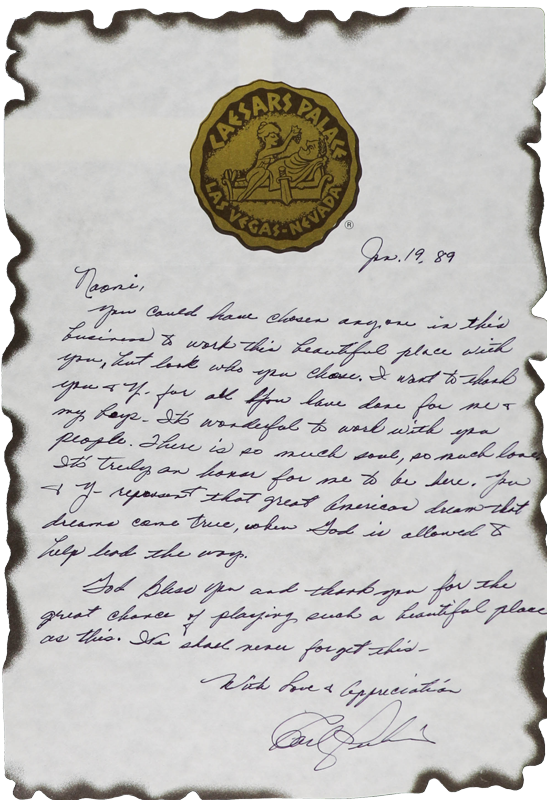 CAESARS PALACE
LAS VEGAS-NEVADA
®
Jan. 19, 89
Naomi,
You could have chosen anyone in this
business to work this beautiful place with
you, but look who you chose. I want to thank
you & Y. for all you have done for me &
my boys. It's wonderful to work with you
people. There is so much soul, so much love.
It's truly an honor for me to be here. You
& Y- represent that great American dream that
dreams come true, when God is allowed to
help lead the way.
God bless you and thank you for the
great chance of playing such a beautiful place
as this. I shall never forget this-
With Love & Appreciation